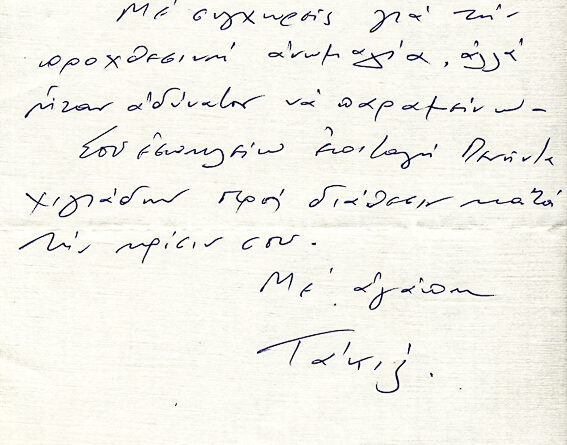 Μέ συγχωρεῖς γιά τήν
προχθεσινή ἀνωμαλία, ἀλλά
ἦταν ἀδύνατον νά παραμείνω -
Σοῦ ἐσωκλείω ἐπιταγή Πενήντα
χιλιάδων πρός διάθεσιν κατά
τήν κρίσιν σου.
Μέ ἀγάπη
Τάκις.